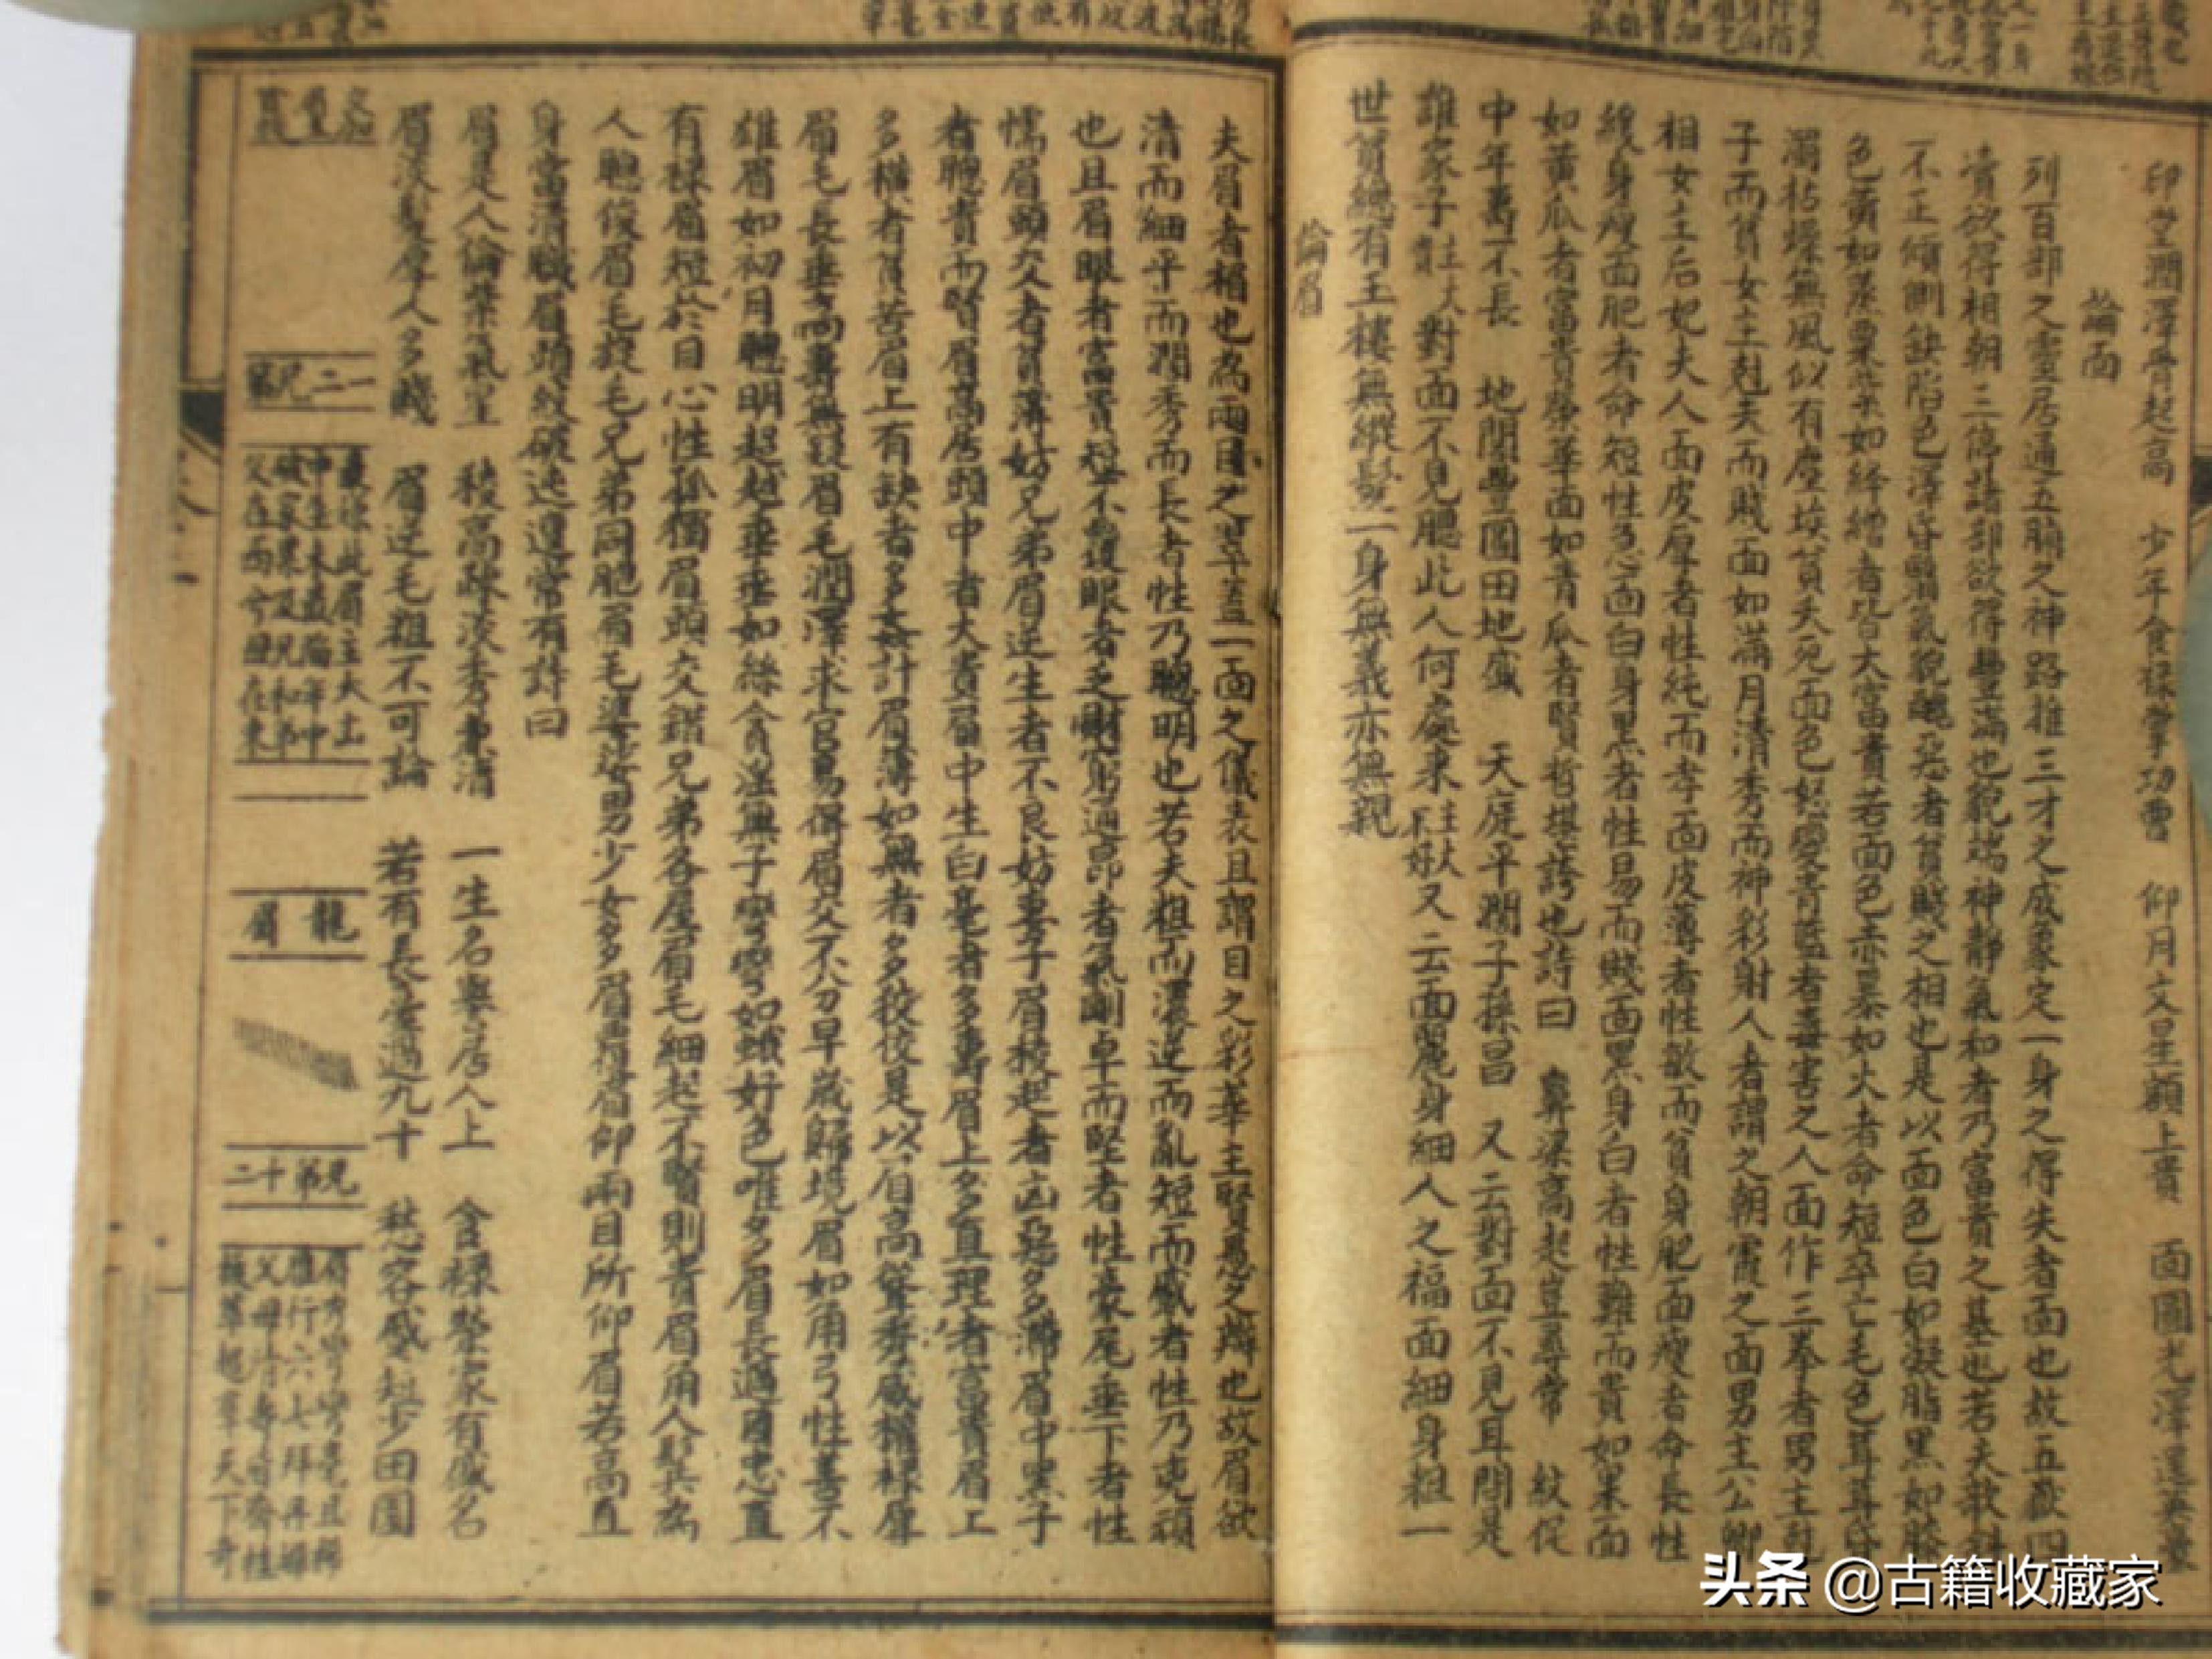 印堂潤澤骨起高　少年食祿掌功曹　仰月文星額上貴　面圓光澤逞英豪
論面
列百部之靈居通五腑之神路推三才之成象定一身之得失者面也故五嶽四
瀆欲得相朝三停諸部欲得豐滿也貌端神靜氣和者乃富貴之基也若夫欹斜
不正傾側缺陷色澤昏翳氣貌醜惡者貧賤之相也是以面色白如凝脂黑如漆
色黃如蒸栗紫如絳繒者皆大富貴若面色赤暴如火者命短卒亡毛色茸茸昏
濁枯燥無風似有塵埃貧夭死面色怒變青藍者毒害之人面作三拳者男主尅
子而貧女主尅夫而賤面如滿月清秀而神彩射人者謂之朝霞之面男主公卿
相女主后妃夫人面皮厚者性純而孝面皮薄者性敏而貧身肥面瘦者命長性
緩身瘦面肥者命短性急面白身黑者性易而賤面黑身白者性難而貴如果面
如黃瓜者富貴榮華面如青瓜者賢哲堪誇也詩曰　鼻梁高起豈尋常　紋促
中年壽不長　地閣豐圓田地盛　天庭平濶子孫昌　又云對面不見耳問是
誰家子　對面不見腮此人何處來　又云面麄身細人之福面細身粗一
世貧總有玉樓無縱髮一身無義亦無親
論眉
夫眉者媚也為兩目之翠蓋一面之儀表且謂目之彩華主賢愚之辨也故眉欲
清而細平而濶秀而長者性乃聰明也若夫粗而濃逆而亂短而蹙者性乃兇頑
也且眉眼者富貴短不覆眼者乏財窮逼昂者氣剛卓而堅者性豪尾垂下者性
懦眉頭交者貧薄妨兄弟眉逆生者不良妨妻子眉稜起者凶惡多滯眉中黑子
者聰貴而賢眉高居頭中者大貴眉中生白毫者多壽眉上多直理者富貴眉上
多橫者貧苦眉上有缺者多奸計眉薄如無者多狡佞是以眉高聳秀威權祿厚
眉毛長垂高壽無疑眉毛潤澤求官易得眉交不分早歲歸墳眉如角弓性善不
雄眉如初月聰明超越垂垂如絲貪淫無子彎彎如蛾好色唯多眉長過目忠直
有祿眉短於目心性孤獨眉頭交錯兄弟各屋眉毛細起不賢則貴眉角入鬢為
人聰俊眉毛旋毛兄弟同胞眉毛婆娑男少女多眉覆眉仰兩目所仰眉若高直
身當清職眉頭紋破迍邅常有詩曰
眉是人倫紫氣星　稜高疎淡秀兼清　一生名譽居人上　食祿榮家有盛名
眉淡髮厚人多賤　眉逆毛粗不可論　若有長毫過九十　愁容蹙短少田園
交加眉
一二兄弟
父在西兮母在東
龍眉
兄弟十二
眉秀彎彎毫且稀
雁行六七拜丹墀
父母清壽皆齊桂
拔萃超羣天下奇
头条 @古籍收藏家